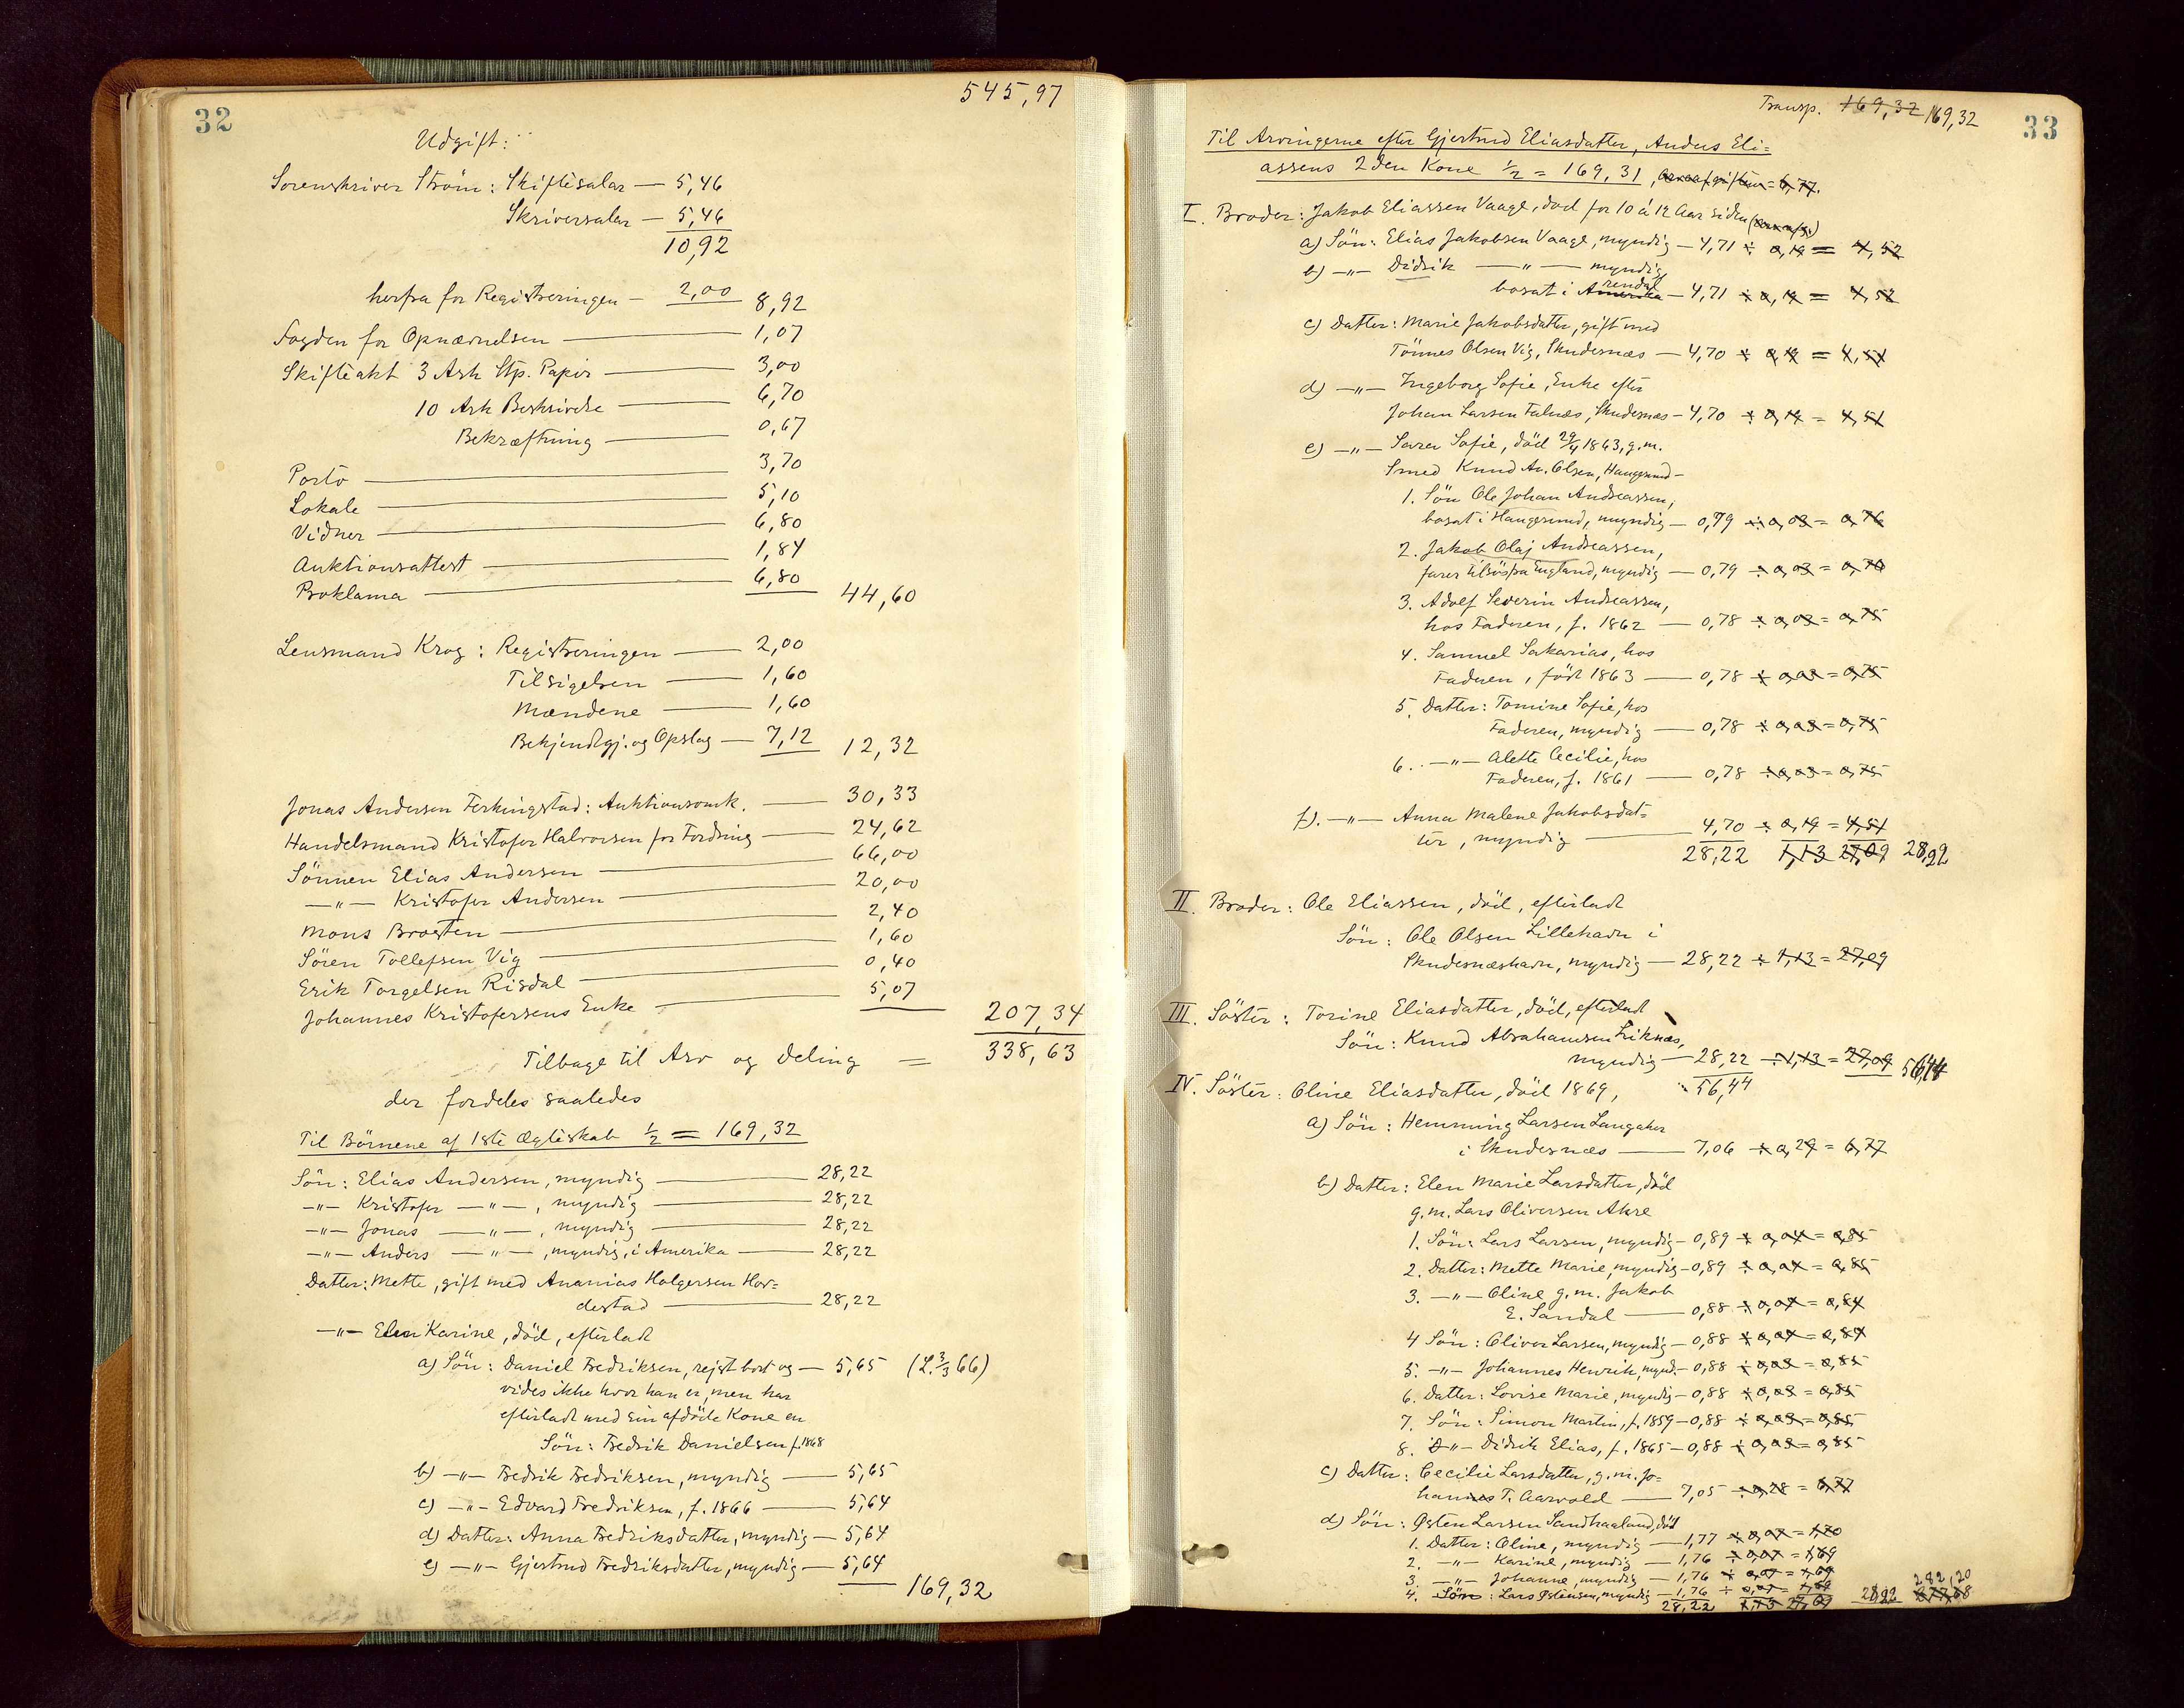 32
545,97
Udgift:
Sorenskriver Ström: Skiftesalar — 5,46
Skriversalar — 5,46
10,92
herfra for Registreringen — 2,00 8,92
Fogden for Opnævnelsen — 1,07
Skifteakt 3 Ark Stp. Papir — 3,00
10 Ark Beskrivelse — 6,70
Bekræftning — 0,67
Porto — 3,70
Lokale — 5,10
Vidner — 6,80
Auktionsattest — 1,84
Proklama — 6,80 44,60
Lensmand Krog: Registreringen — 2,00
Tilsigelsen — 1,60
Mændene — 1,60
Bekjendtgj. og Opslag — 7,12 12,32
Jonas Andersen Ferkingstad: Auktionsomk. — 30,33
Handelsmand Kristofer Halvorsen for Fordring — 24,62
Sönnen Elias Andersen — 66,00
—"— Kristofer Andersen — 20,00
Mons Brosten — 2,40
Sören Tollefsen Vig — 1,60
Erik Torgelsen Risdal — 0,40
Johannes Kristofersens Enke — 5,07 207,34
Tilbage til Arv og Deling = 338,63
der fordeles saaledes
Til Börnene af 1ste Ægteskab ½ = 169,32
Sön: Elias Andersen, myndig — 28,22
—"— Kristofer —"—, myndig — 28,22
—"— Jonas —"—, myndig — 28,22
—"— Anders —"—, myndig, i Amerika — 28,22
Datter: Mette, gift med Ananias Holgersen Hor=
destad — 28,22
—"— Elen Karine, död, efterladt
a) Sön: Daniel Fredriksen, rejst bort og — 5,65 (L. 3/3 66)
vides ikke hvor han er, men har
efterladt med sin afdöde Kone en
Sön: Fredrik Danielsen f. 1868
b) —"— Fredrik Fredriksen, myndig — 5,65
c) —"— Edvard Fredriksen, f. 1866 — 5,64
d) Datter: Anna Fredriksdatter, myndig — 5,64
e) —"— Gjertrud Fredriksdatter, myndig — 5,64
169,32
33
Transp. 169,32 169,32
Til Arvingerne efter Gjertrud Eliasdatter, Anders Eli=
assens 2den Kone ½ = 169,31, = 6,77.
I. Broder: Jakob Eliassen Vaage, död for 10 à 12 Aar siden
a) Sön: Elias Jakobsen Vaage, myndig — 4,71 ÷ 0,19 = 4,52
b) —"— Didrik —"— myndig
rendal
bosat i Amerika — 4,71 ÷ 0,19 = 4,52
c) Datter: Marie Jakobsdatter, gift med
Tönnes Olsen Vig, Skudesnæs — 4,70 ÷ 0,19 = 4,51
d) —"— Ingeborg Sofie, Enke efter
Johan Larsen Falnæs, Skudesnæs — 4,70 ÷ 0,19 = 4,51
e) —"— Sara Sofie, död 29/4 1863, g.m.
Smed Knud An. Olsen, Haugesund —
1. Sön Ole Johan Andreassen,
bosat i Haugesund, myndig — 0,79 ÷ 0,03 = 0,76
2. Jakob Olaj Andreassen,
farer tilsös fra England, myndig — 0,79 ÷ 0,03 = 0,76
3. Adolf Severin Andreassen,
hos Faderen, f. 1862 — 0,78 ÷ 0,03 = 0,75
4. Samuel Sakarias, hos
Faderen, født 1863 — 0,78 ÷ 0,03 = 0,75
5. Datter: Tomine Sofie, hos
Faderen, myndig — 0,78 ÷ 0,03 = 0,75
6. —"— Alette Cecilie, hos
Faderen, f. 1861 — 0,78 ÷ 0,03 = 0,75
f). —"— Anna Malene Jakobsdat=
ter, myndig — 4,70 ÷ 0,19 = 4,51
28,22 1,13 27,09 28,22
II. Broder: Ole Eliassen, död, efterladt
Sön: Ole Olsen Lillehavn i
Skudesnæshavn, myndig — 28,22 ÷ 1,13 = 27,09
III. Söster: Torine Eliasdatter, död, efterladt
Sön: Knud Abrahamsen Liknæs,
myndig — 28,22 ÷ 1,13 = 27,09 56,44
56,44
IV. Söster: Oline Eliasdatter, död 1869,
a) Sön: Hemming Larsen Langaker
i Skudesnæs — 7,06 ÷ 0,29 = 6,77
b) Datter: Elen Marie Larsdatter, död
g.m. Lars Oliversen Akre
1. Sön: Lars Larsen, myndig — 0,89 ÷ 0,04 = 0,85
2. Datter: Mette Marie, myndig — 0,89 ÷ 0,04 = 0,85
3. —"— Oline g.m. Jakob
E. Sandal — 0,88 ÷ 0,04 = 0,84
4 Sön: Oliver Larsen, myndig — 0,88 ÷ 0,04 = 0,84
5. —"— Johannes Henrik, mynd. — 0,88 ÷ 0,03 = 0,85
6. Datter: Lovise Marie, myndig — 0,88 ÷ 0,03 = 0,85
7. Sön: Simon Martin, f. 1859 — 0,88 ÷ 0,03 = 0,85
8. —"— Didrik Elias, f. 1865 — 0,88 ÷ 0,03 = 0,85
c) Datter: Cecilie Larsdatter, g.m. Jo=
hannes T. Aarvold — 7,05 ÷ 0,28 = 6,77
d) Sön: Østen Larsen Sandhaaland, död
1. Datter: Oline, myndig — 1,77 ÷ 0,07 = 1,70
2. —"— Karine, myndig — 1,76 ÷ 0,07 = 1,69
3. —"— Johanne, myndig — 1,76 ÷ 0,07 = 1,69
4. Sön: Lars Østensen, myndig — 1,76 ÷ 0,07 = 1,69 282,20
28,22 1,13 27,09 28,22